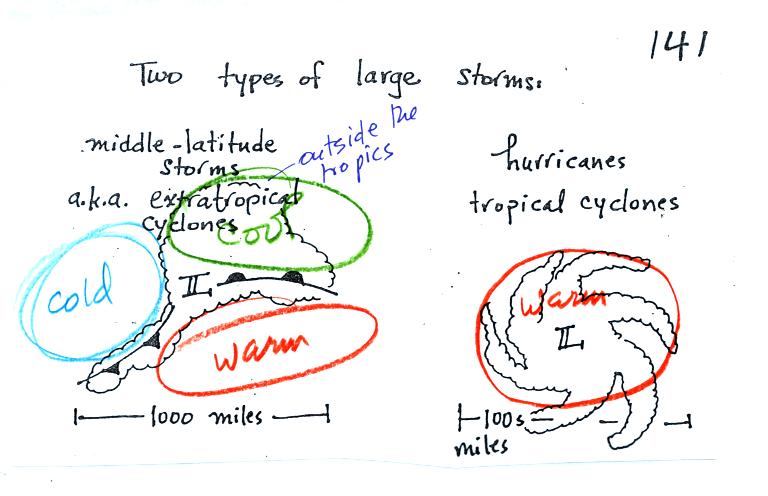 141
Two types of large storms:
middle-latitude
storms
a.k.a. extratropical
cyclones
outside the
tropics
cool
cold
L
warm
1000 miles
hurricanes
tropical cyclones
warm
L
100s
miles